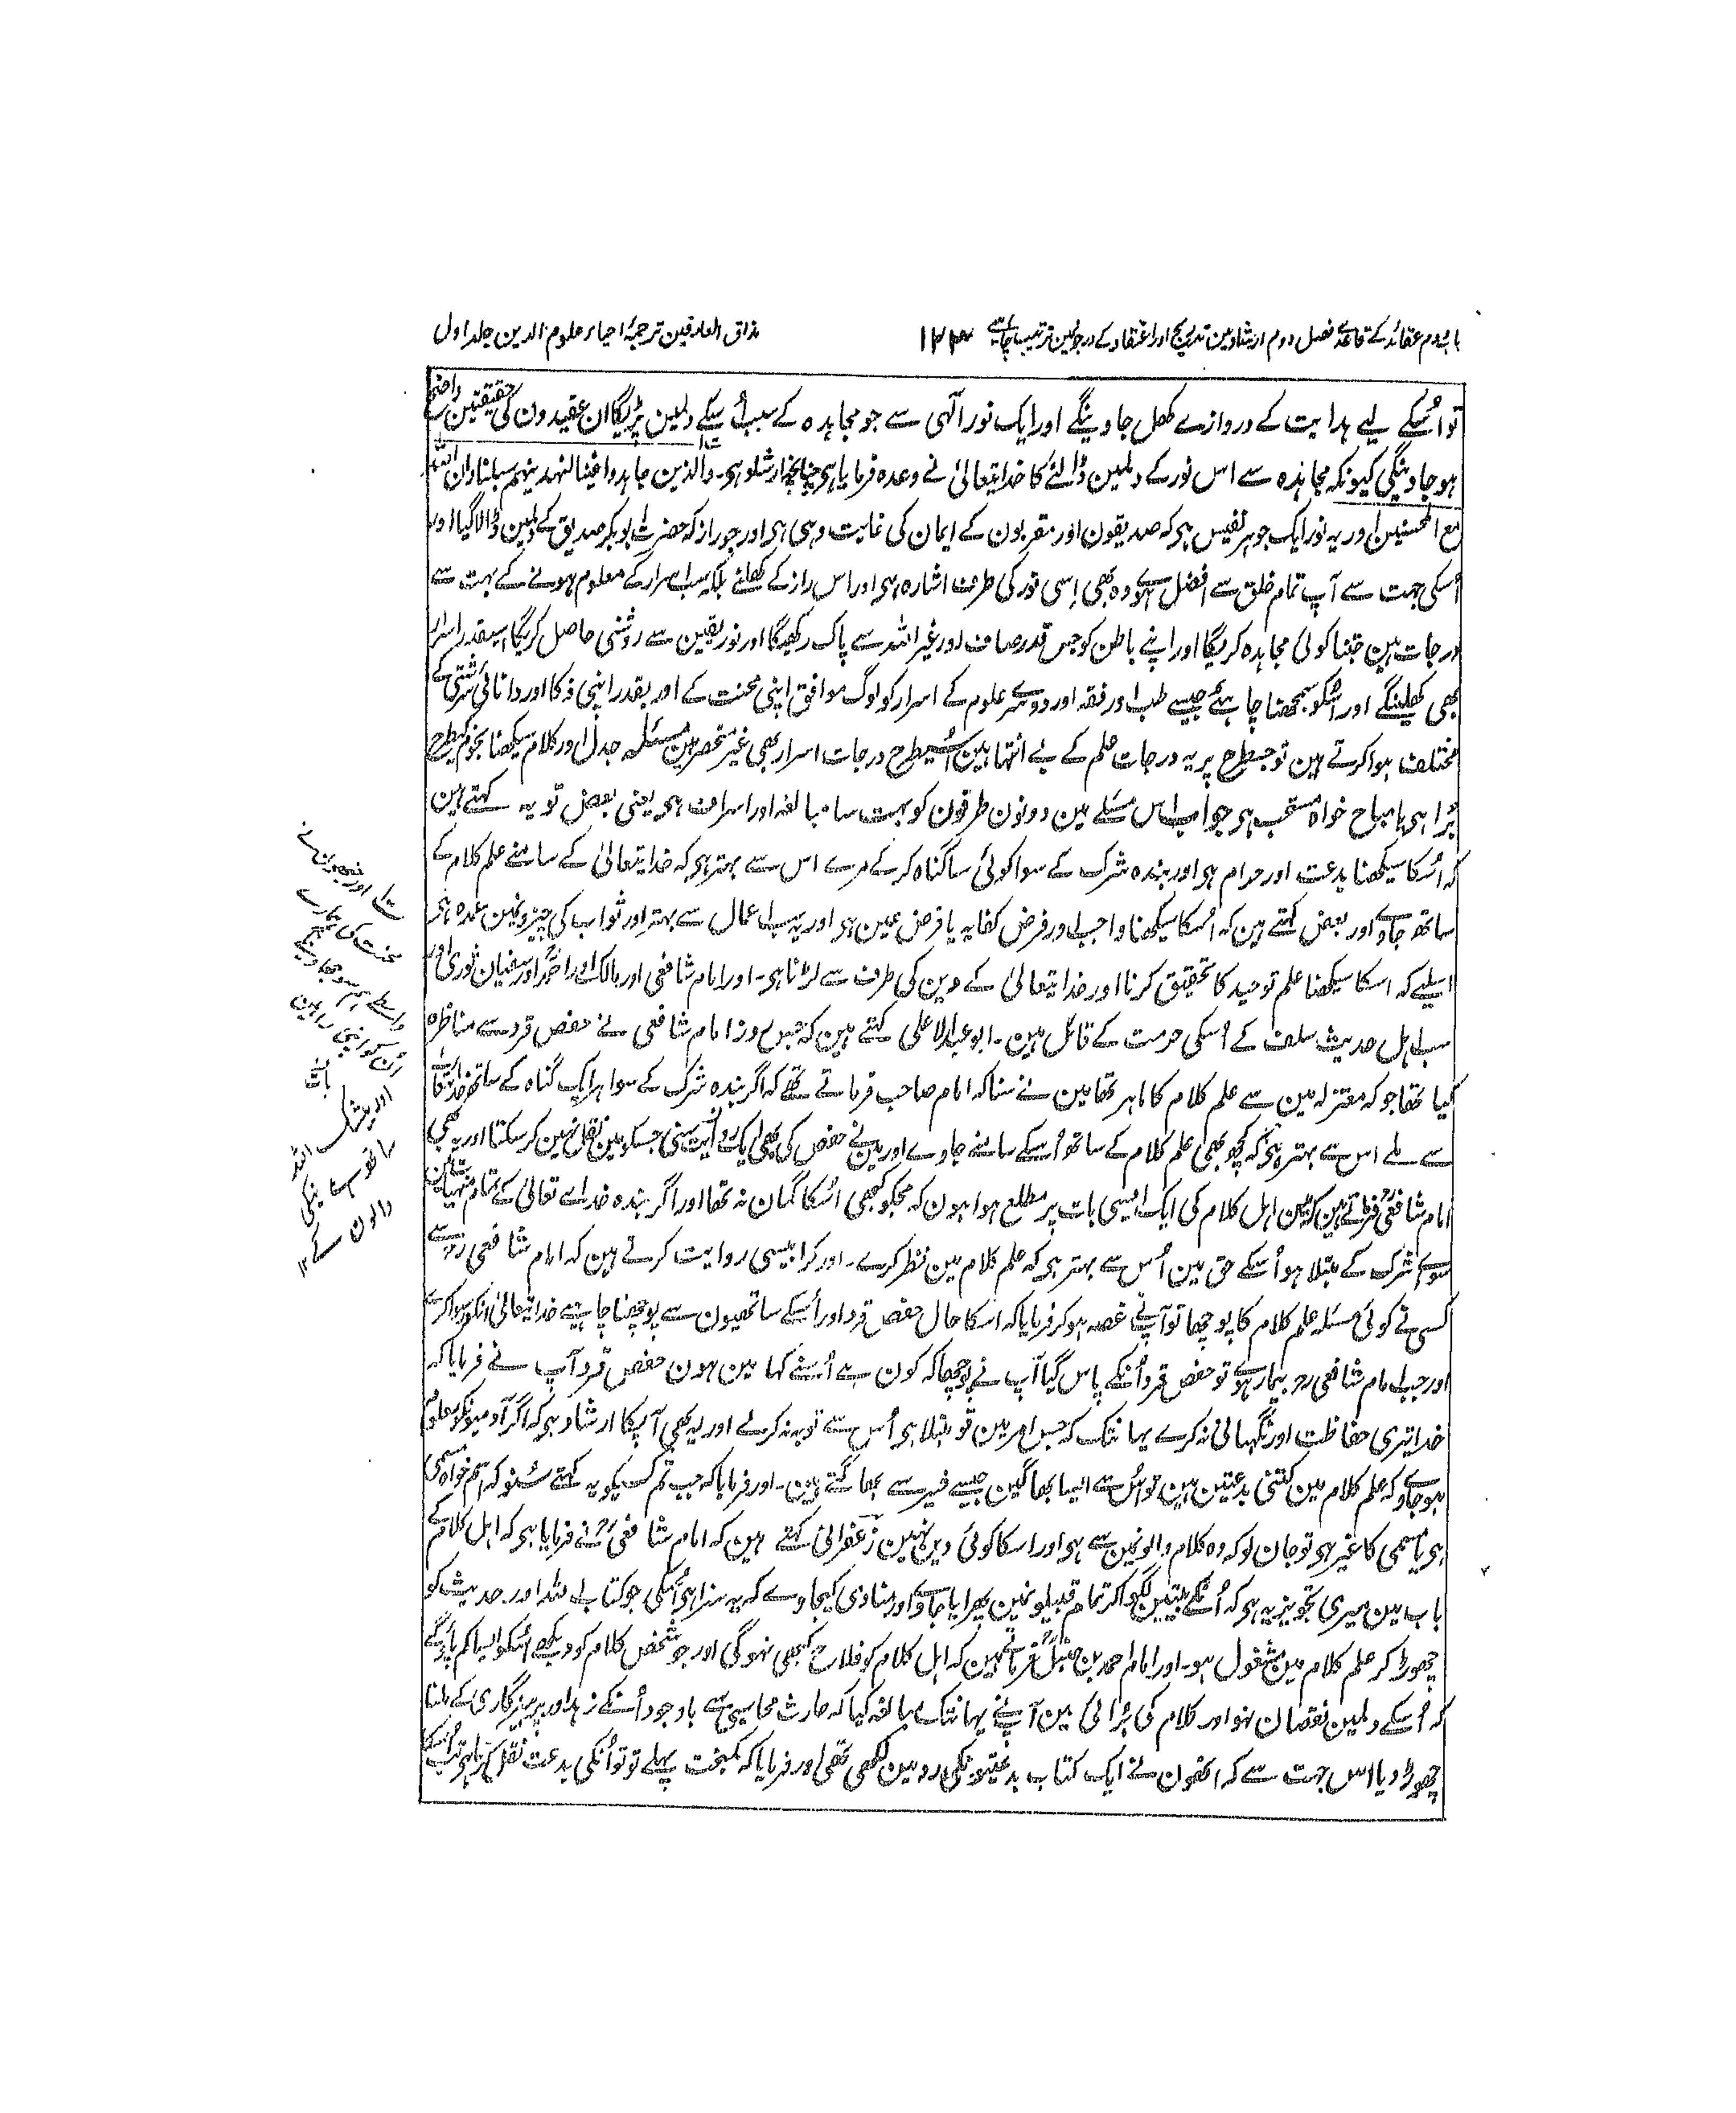 باب دوم عقائد کے قاعدے فصل دوم ارشاد مین تدریج اور اعتقاد کے درجونمین ترتیب چاہیے
مذاق العارفین ترجمۂ احیاء علوم الدین جلد اول
تو اُسکے لیے ہدایت کے دروازے کھل جاوینگے اور ایک نور الٰہی سے جو مجاہدہ کے سبب اُسکے دلمین پڑیگا ان عقیدون کی حقیقتین واضح
ہو جاوینگی کیونکہ مجاہدہ سے اس نور کے دلمین ڈالنے کا خدایتعالیٰ نے وعدہ فرمایا ہی چنانچہ ارشاد ہی۔ والذین جاہدوا فینا لنہدینہم سبلنا وان اللہ
مع المحسنین اور یہ نور ایک جوہر نفیس ہی کہ صدیقون اور مقربون کے ایمان کی غایت وہی ہی اور جو راز کہ حضرت ابو بکر صدیق کے دلمین ڈالا گیا اور
اُسکی جہت سے آپ تمام خلق سے افضل ہوے وہ بھی اِسی نور کی طرف اشارہ ہی اور اس راز کے کھلنے بلکہ سب اسرار کے معلوم ہونے کے بہت سے
درجات ہین جتنا کوئی مجاہدہ کریگا اور اپنے باطن کو جس قدر صاف اور غیر اللہ سے پاک رکھیگا اور نور یقین سے روشنی حاصل کریگا اسیقدر اسرار
بھی کھلینگے اور اسکو سمجھنا چاہیے جیسے طب اور فقہ اور دوسرے علوم کے اسرار کو لوگ موافق اپنی محنت کے اور بقدر اپنی ذکا اور دانائی سرشتی کے
مختلف ہوا کرتے ہین تو جسطرح پر یہ درجات علم کے بے انتہا ہین اُسیطرح درجات اسرار بھی غیر منحصر ہین مسئلہ جدل اور کلام سیکھنا نجوم کیطرح
بُرا ہی یا مباح خواہ مستحب ہی جواب اس مسئلے مین دونون طرفون کو بہت سا مبالغہ اور اسراف ہی یعنی بعض تو یہ کہتے ہین
کہ اُسکا سیکھنا بدعت اور حرام ہی اور بندہ شرک کے سوا کوئی سا گناہ کر کے مرے اس سے بہتر ہی کہ خدایتعالیٰ کے سامنے علم کلام کے
ساتھ جاوے اور بعض کہتے ہین کہ اُسکا سیکھنا واجب اور فرض کفایہ یا فرض عین ہی اور یہ سب اعمال سے بہتر اور ثواب کی چیزونمین عمدہ ہی
اسلیے کہ اسکا سیکھنا علم توحید کا تحقیق کرنا اور خدایتعالیٰ کے دین کی طرف سے لڑنا ہی۔ اور امام شافعی اور مالک اور احمد اور سفیان ثوری اور
سب اہل حدیث سلف کے اُسکی حرمت کے قائل ہین۔ ابو عبد الاعلی کہتے ہین کہ جس روز امام شافعی نے حفص قرد سے مناظرہ
کیا تھا جو کہ معتزلہ مین سے علم کلام کا ماہر تھا مین نے سنا کہ امام صاحب فرماتے تھے کہ اگر بندہ شرک کے سوا ہر ایک گناہ کے ساتھ خدایتعالیٰ
سے ملے اس سے بہتر ہی کہ کچھ بھی علم کلام کے ساتھ اُسکے سامنے جاوے اور مین نے حفص کی بھی ایک روایت سنی جسکو مین نقل نہین کر سکتا اور یہ بھی
امام شافعی فرماتے ہین کہ مین اہل کلام کی ایک ایسی بات پر مطلع ہوا ہون کہ مجکو کبھی اُسکا گمان نہ تھا اور اگر بندہ خداے تعالیٰ کے تمام منہیات مین
سواے شرک کے مبتلا ہو اُسکے حق مین اُس سے بہتر ہی کہ علم کلام مین نظر کرے۔ اور کرابیسی روایت کرتے ہین کہ امام شافعی رح سے
کسی نے کوئی مسئلہ علم کلام کا پوچھا تو آپ نے غصہ ہو کر فرمایا کہ اسکا حال حفص قرد اور اُسکے ساتھیون سے پوچھنا چاہیے خدایتعالیٰ انکو رسوا کرے
اور جب امام شافعی رح بیمار ہوے تو حفص قرد اُنکے پاس گیا آپ نے پوچھا کہ کون ہے اُسنے کہا مین ہون حفص قرد آپ نے فرمایا کہ
خدا تیری حفاظت اور نگہبانی نہ کرے یہانتک کہ جس امر مین تو مبتلا ہی اُس سے توبہ نہ کرلے اور یہ بھی آپکا ارشاد ہی کہ اگر آدمیونکو معلوم
ہو جاوے کہ علم کلام مین کتنی بدعتین ہین تو اُس سے ایسا بھاگین جیسے شیر سے بھاگتے ہین۔ اور فرمایا کہ جب تم کسیکو یہ کہتے سنو کہ اسم خواہ مسمی
ہی یا مسمی کا غیر ہی تو جان لو کہ وہ کلام والونمین سے ہی اور اسکا کوئی دین نہین زعفرانی کہتے ہین کہ امام شافعی رح نے فرمایا ہی کہ اہل کلام کے
باب مین میری تجویز یہ ہی کہ اُنکے بیتین لگوا کر تمام قبیلونمین پھرایا جاوے اور منادی کیجاوے کہ یہ سزا ہی اُسکی جو کتاب اللہ اور حدیث کو
چھوڑ کر علم کلام مین مشغول ہو۔ اور امام احمد بن حنبل فرماتے ہین کہ اہل کلام کو فلاح کبھی نہوگی اور جو شخص کلام کو دیکھے اُسکو ایسا کم پاؤگے
کہ اُسکے دلمین نقصان نہو اور کلام کی بُرائی مین آپ نے یہانتک مبالغہ کیا کہ حارث محاسبی سے باوجود اُنکے زہد اور پرہیزگاری کے ملنا
چھوڑ دیا اس جہت سے کہ انھون نے ایک کتاب بدعتیونکی رد مین لکھی تھی اور فرمایا کہ کمبخت پہلے تو تو اُنکی بدعت نقل کرتا ہی تب
اور جنھون نے
محنت کی ہمارے
واسطے ہم سوجھا دینگے
اُن کو اپنی راہین
اور بیشک اللہ
ساتھ ہے نیکی
والون کے ۱۲